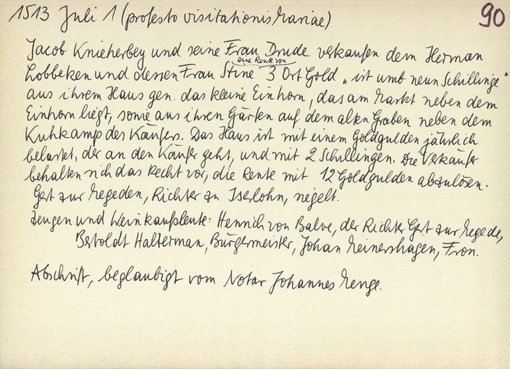 1513 Juli 1 (profesto visitationis Mariae)
90
Jacob Knieherbey und seine Frau Drude verkaufen dem Herman
eine Rente von
Lobbeken und dessen Frau Stine 3 Ort Gold „ist umb neun Schillinge"
aus ihrem Haus gen. das kleine Einhorn, das am Markt neben dem
Einhorn liegt, sowie aus ihren Gärten auf dem alten Graben neben dem
Kuhkamps des Käufers. Das Haus ist mit einem Goldgulden jährlich
belastet, der an den Käufer geht, und mit 2 Schillingen. Die Verkäufer
behalten sich das Recht vor, die Rente mit 12 Goldgulden abzulösen.
Gert zur Megeden, Richter zu Iserlohn, siegelt.
Zeugen und Weinkaufsleute: Henrich von Balve, der Richter Gert zur Megede,
Bertoldt Halterman, Bürgermeister, Johan Meinershagen, Fron.
Abschrift, beglaubigt vom Notar Johannes Menge.